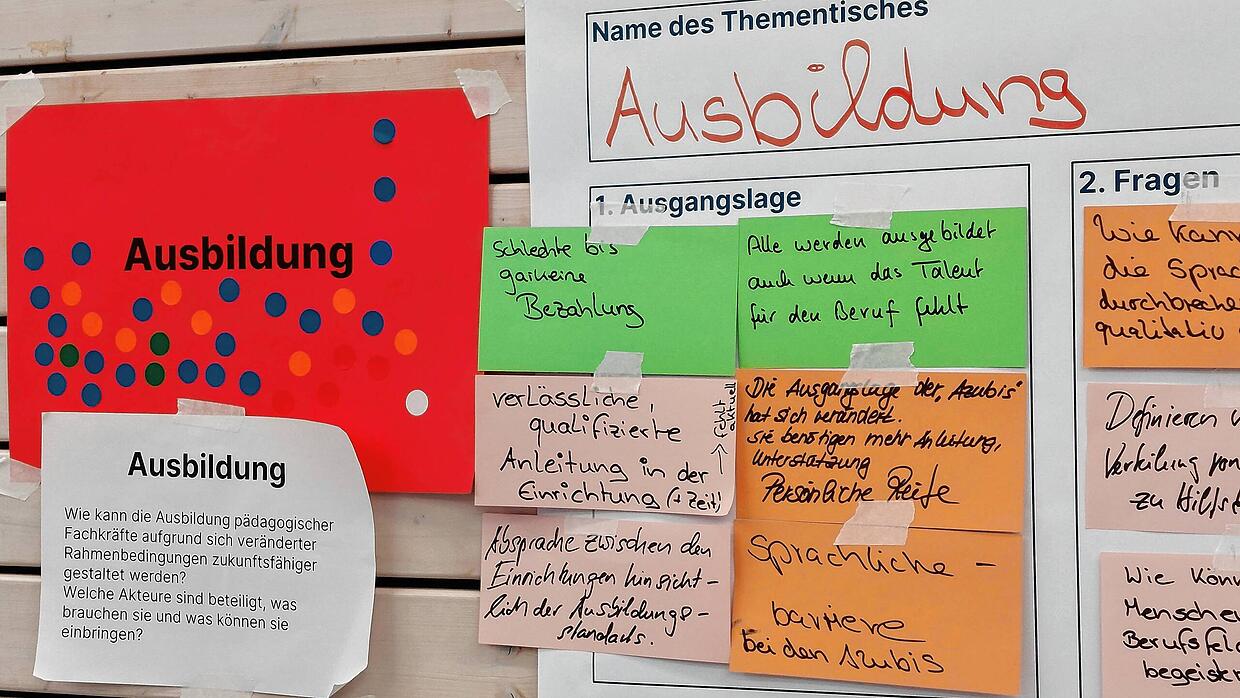 Ausbildung
Ausbildung
Wie kann die Ausbildung pädagogischer
Fachkräfte aufgrund sich veränderter
Rahmenbedingungen zukunftsfähiger
gestaltet werden?
Welche Akteure sind beteiligt, was
brauchen sie und was können sie
einbringen?
Name des Thementisches
Ausbildung
1. Ausgangslage
Schlechte bis
garkeine
Bezahlung
Alle werden ausgebildet
auch wenn das Talent
für den Beruf fehlt
verlässliche,
qualifizierte
Anleitung in der
Einrichtung (+ Zeit)
fehlt
aktuell
Die Ausgangslage der "Azubis"
hat sich verändert.
sie benötigen mehr Anleitung,
Unterstützung
Persönliche Reife
Absprache zwischen den
Einrichtungen hinsicht-
lich der Ausbildungs-
standards.
Sprachliche -
barriere
bei den Azubis
2. Fragen
Wie kann
die Sprac
durchbreche
qualitativ
Definieren
zu Hilfs
Wie könn
Mensche
Berufsfel
begeister